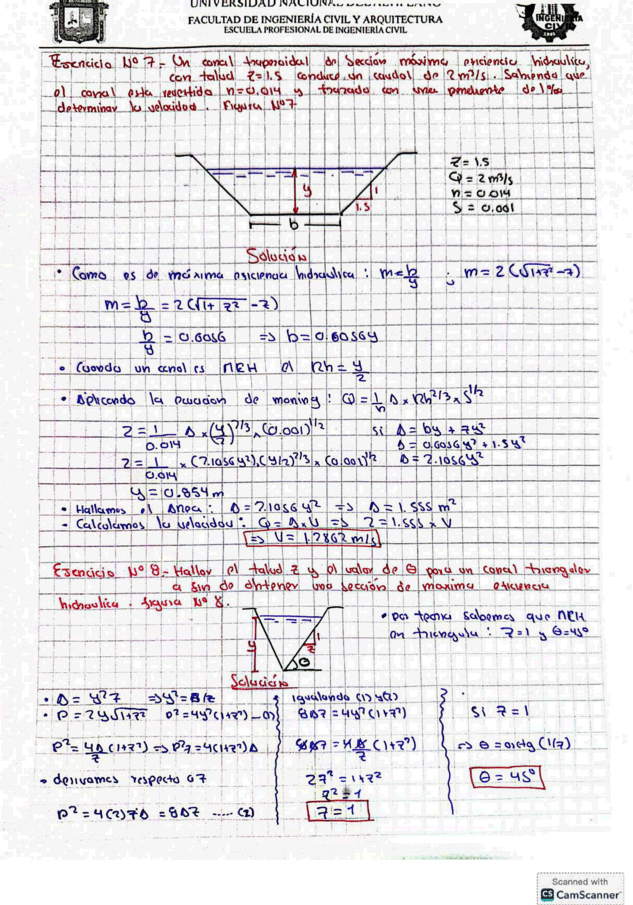 UNIVERSIDAD NACIONAL DEL ALTIPLANO
FACULTAD DE INGENIERÍA CIVIL Y ARQUITECTURA
ESCUELA PROFESIONAL DE INGENIERÍA CIVIL
INGENIERIA
CIVIL
Ejercicio Nº 7.- Un canal trapezoidal de Sección máxima eficiencia hidraulica,
con talud Z=1.5 conduce un caudal de 2 m³/s. Sabiendo que
el canal esta revestido n=0.014 y trazado con una pendiente de 1‰
determinar la velocidad. Figura Nº7
Z = 1.5
Q = 2 m³/s
n = 0.014
S = 0.001
y
1
1.5
b
Solución
• Como es de máxima eficiencia hidraulica : m = b/y ; m = 2(√1+z² - z)
m = b/y = 2(√1+z² - z)
b/y = 0.6056 => b = 0.6056y
• Cuando un canal es MEH el Rh = y/2
• Aplicando la ecuacion de maning : Q = 1/n A × Rh^2/3 × S^1/2
2 = 1/0.014 A × (y/2)^2/3 × (0.001)^1/2 si A = by + zy²
A = 0.6056y² + 1.5y²
2 = 1/0.014 × (2.1056y²) × (y/2)^2/3 × (0.001)^1/2 A = 2.1056y²
y = 0.854 m
• Hallamos el Area : A = 2.1056y² => A = 1.555 m²
- Calculamos la velocidad : Q = A × V => 2 = 1.555 × V
=> V = 1.2862 m/s
Ejercicio Nº 8.- Hallar el talud z y el valor de θ para un canal triangular
a fin de obtener una sección de maxima eficiencia
hidraulica. figura Nº 8.
y
1
z
θ
• por teoria sabemos que MEH
en triangula : z=1 y θ=45°
Solución
• A = y²z => y² = A/z
• P = 2y√1+z² P² = 4y²(1+z²) —(1)
P² = 4A/z (1+z²) => P²z = 4(1+z²)A
• derivamos respecto a z
P² = 4(2)zA = 8Az ..... (2)
igualando (1) y (2)
8Az = 4y²(1+z²)
8Az = 4A/z (1+z²)
2z² = 1+z²
z² = 1
z = 1
Si z = 1
=> θ = arctg (1/z)
θ = 45°
Scanned with
CS CamScanner